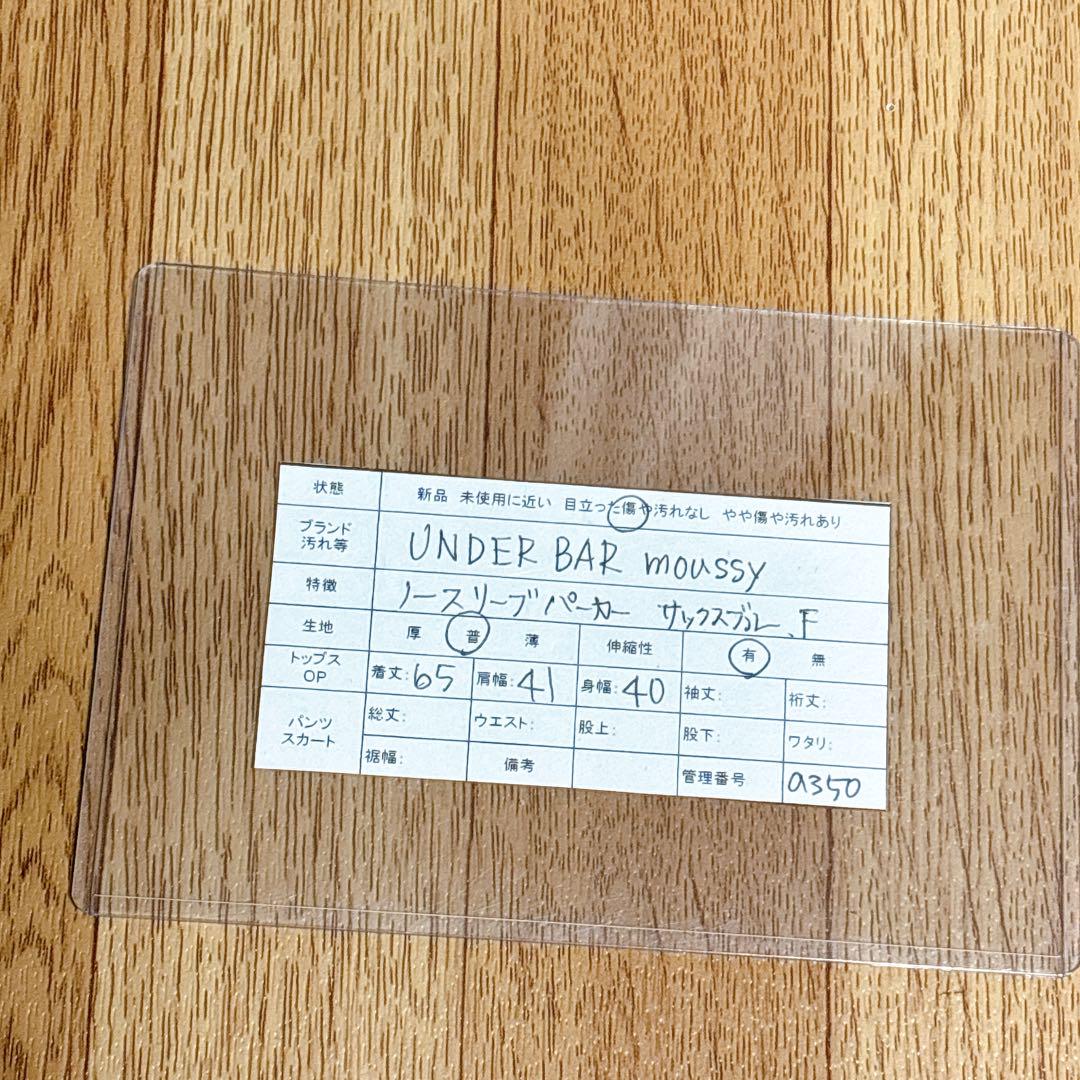 状態 新品 未使用に近い 目立った傷や汚れなし やや傷や汚れあり
ブランド
汚れ等 UNDER BAR moussy
特徴 ノースリーブパーカー サックスブルー、F
生地 厚 普 薄 伸縮性 有 無
トップス
OP 着丈:65 肩幅:41 身幅:40 袖丈: 裄丈:
パンツ
スカート 総丈: ウエスト: 股上: 股下: ワタリ:
裾幅: 備考 管理番号 a350